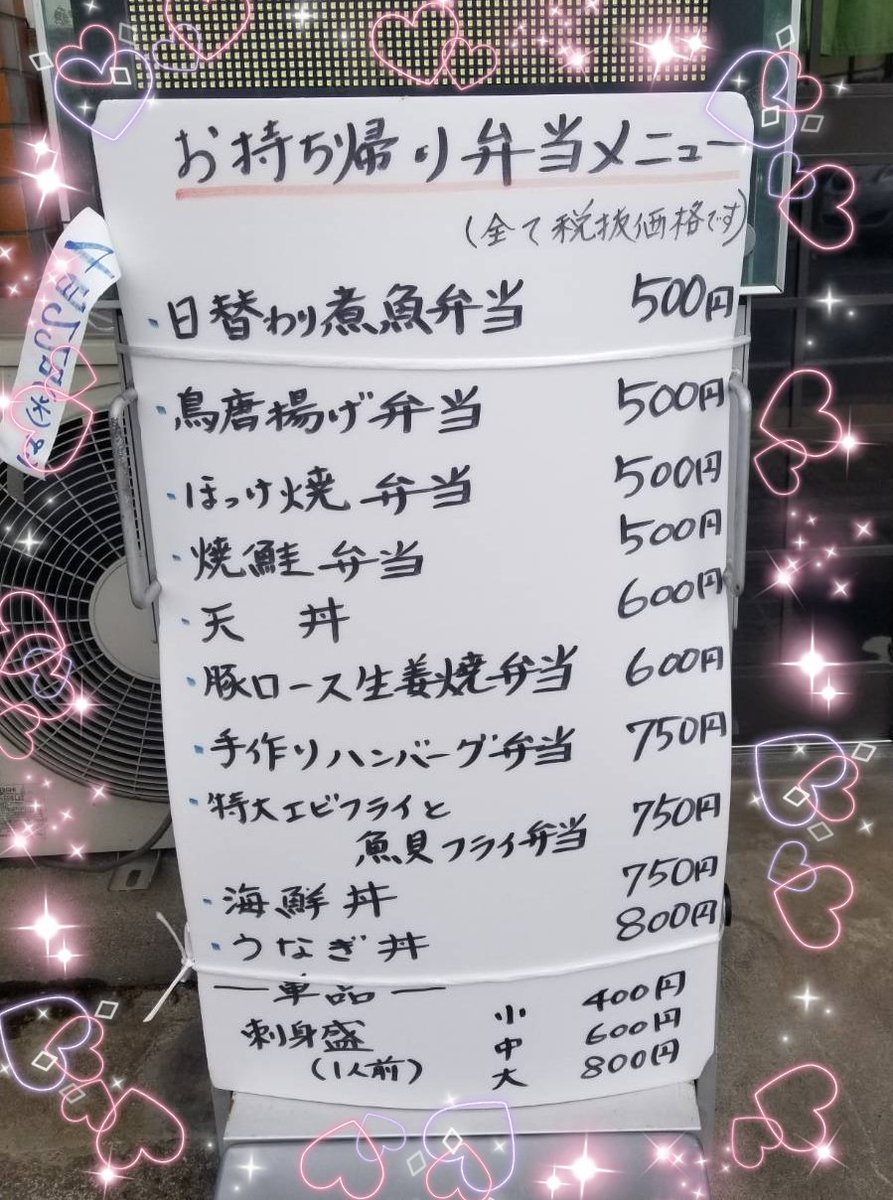 お持ち帰り弁当メニュー
(全て税抜価格です)
・日替わり煮魚弁当 500円
・鳥唐揚げ弁当 500円
・ほっけ焼弁当 500円
・焼鮭弁当 500円
・天丼 600円
・豚ロース生姜焼弁当 600円
・手作りハンバーグ弁当 750円
・特大エビフライと
魚貝フライ弁当 750円
・海鮮丼 750円
・うなぎ丼 800円
ー単品ー
刺身盛 小 400円
中 600円
(1人前) 大 800円